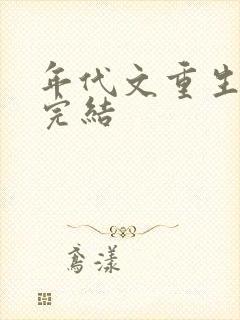 年代文重生
完結
鳶漾